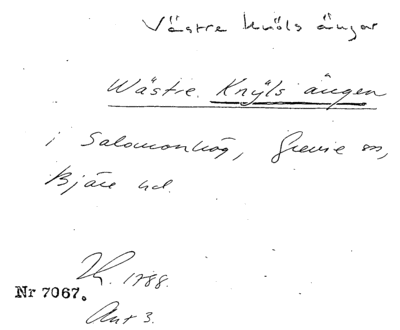 Västre Knöls ängar
Wästre Knÿls ängen
i Salomonhög, Grevie sn,
Bjäre hd.
1788.
Nr 7067.
Akt 3.